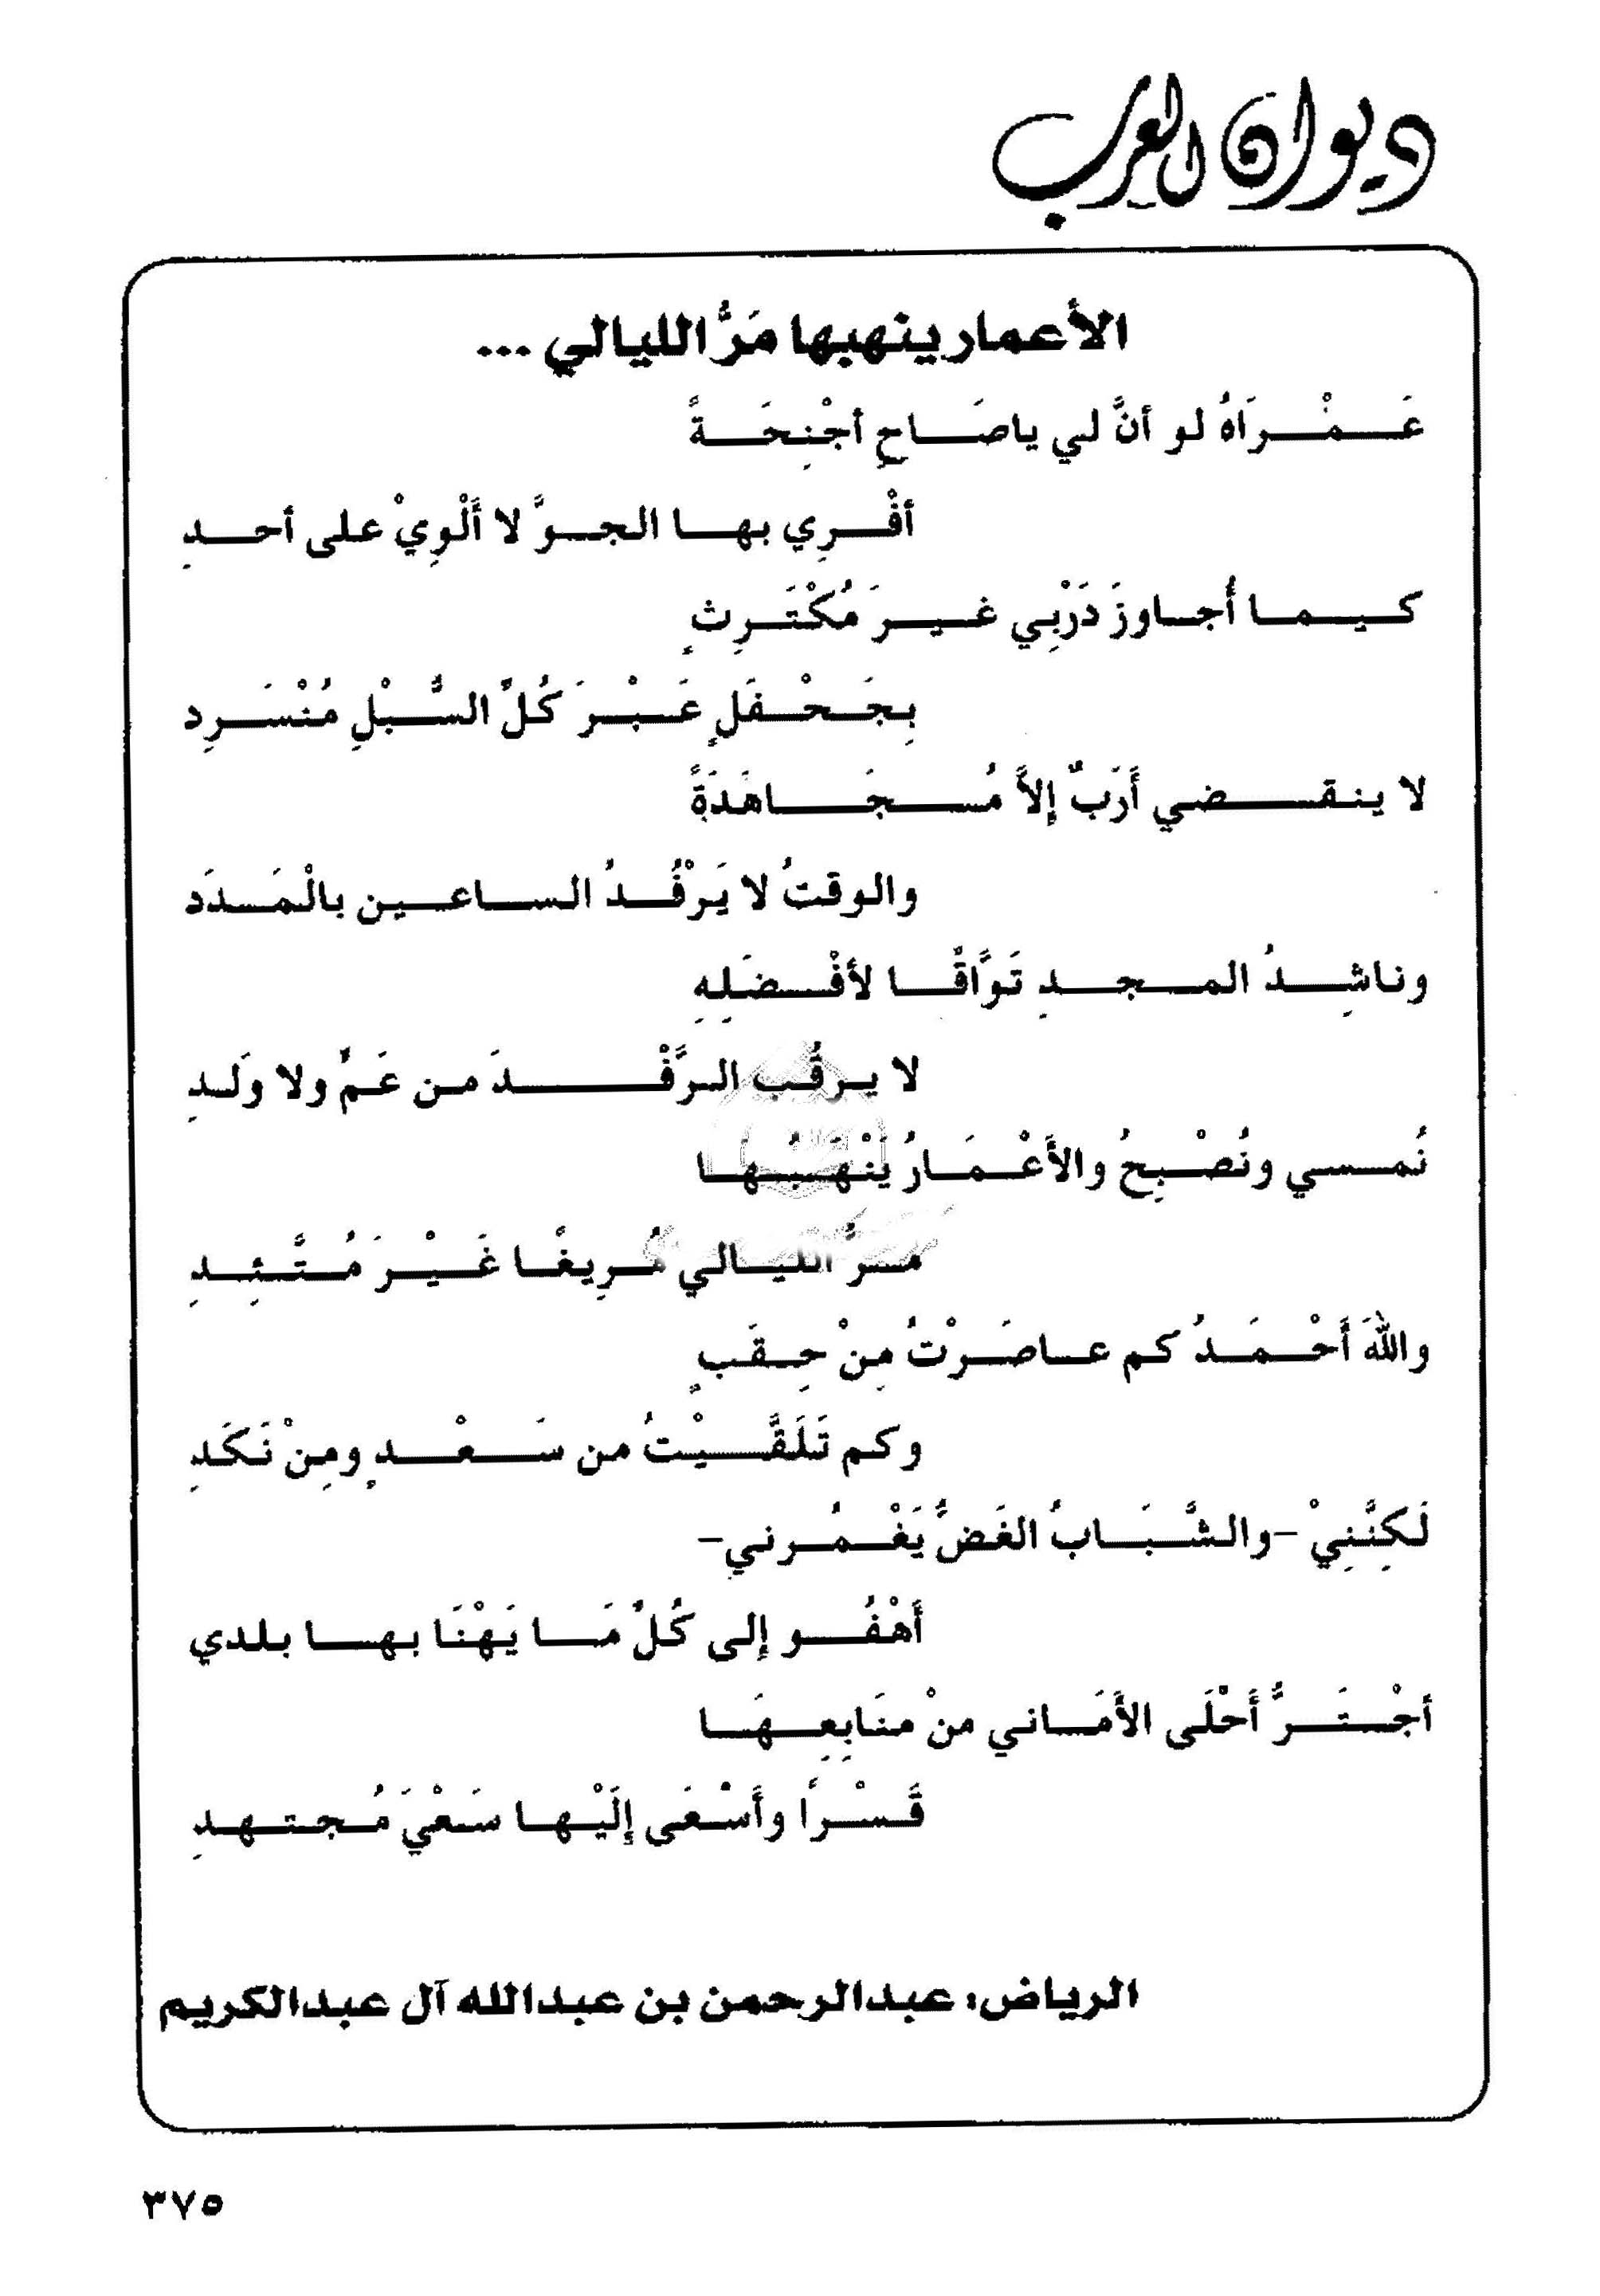 ديوان العرب
الأعمار ينهبها مَرُّ الليالي ...
عَمْرَاهُ لو أنَّ لي ياصَاحِ أجْنِحَةً
أفْرِي بها الجوَّ لا أَلْوِيْ على أحدِ
كيما أُجاوزَ دَرْبِي غيرَ مُكْتَرِثٍ
بِجَحْفَلٍ عَبْرَ كُلِّ السُّبْلِ مُنْسَرِد
لا ينقضي أَرَبٌ إلاَّ مُجَاهَدَةً
والوقتُ لا يَرْفُدُ الساعين بالْمَدَد
وناشِدُ المجدِ تَوَّاقًا لأفْضَلِهِ
لا يرقُب الرَّفْدَ من عَمٍّ ولا وَلَدِ
نُمسي ونُصْبِحُ والأَعْمَارُ يَنْهَبُهَا
مَرُّ الليالي مُرِيغًا غَيْرَ مُتَّئِدِ
واللهَ أَحْمَدُ كم عاصَرْتُ مِنْ حِقَبٍ
وكم تَلَقَّيْتُ من سَعْدٍ ومِنْ نَكَدِ
لَكِنَّنِيْ -والشَّبَابُ الغَضُّ يَغْمُرني-
أَهْفُو إلى كُلِّ مَا يَهْنَا بها بلدي
أجْتَرُّ أَحْلَى الأَمَاني منْ منَابِعِهَا
قَسْرًا وأَسْعَى إلَيْها سَعْيَ مُجتهدِ
الرياض: عبدالرحمن بن عبدالله آل عبدالكريم
٣٧٥